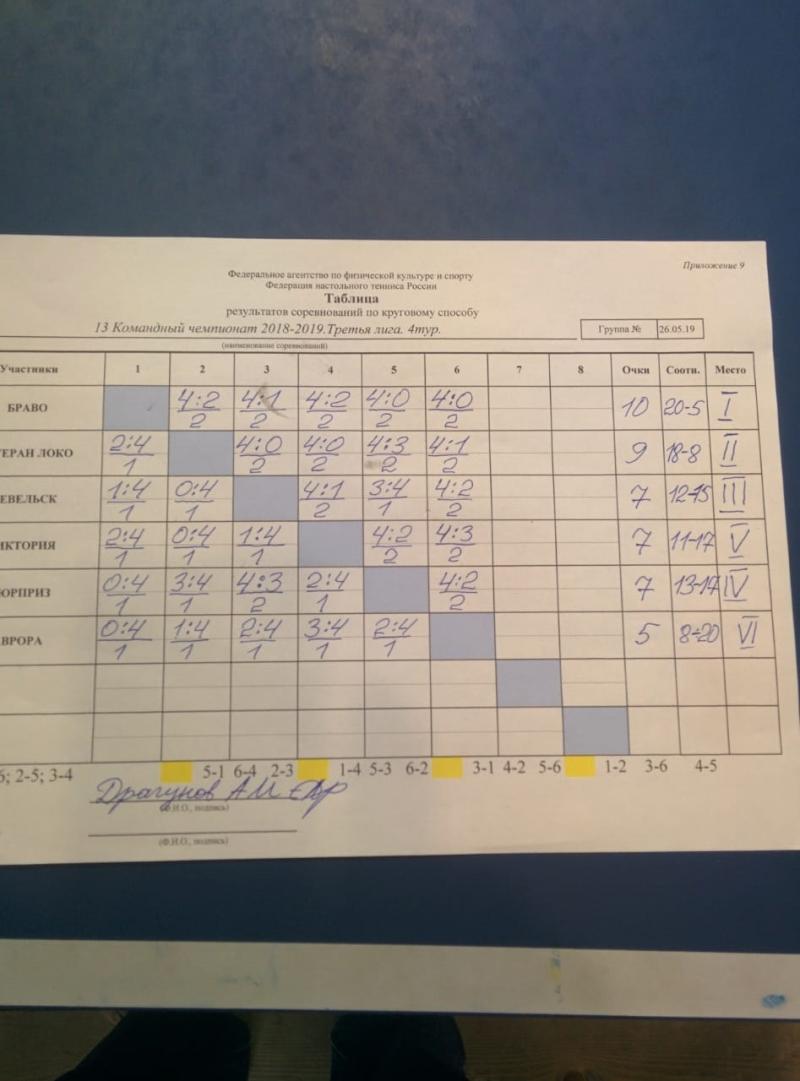 Приложение 9
Федеральное агентство по физической культуре и спорту
Федерация настольного тенниса России
Таблица
результатов соревнований по круговому способу
13 Командный чемпионат 2018-2019.Третья лига. 4тур.
Группа № 26.05.19
(наименование соревнований)
Участники 1 2 3 4 5 6 7 8 Очки Соотн. Место
БРАВО 4:2 4:1 4:2 4:0 4:0 10 20-5 I
2 2 2 2 2
ЕРАН ЛОКО 2:4 4:0 4:0 4:3 4:1 9 18-8 II
1 2 2 2 2
ЕВЕЛЬСК 1:4 0:4 4:1 3:4 4:2 7 12-15 III
1 1 2 1 2
ИКТОРИЯ 2:4 0:4 1:4 4:2 4:3 7 11-17 V
1 1 1 2 2
ЮРПРИЗ 0:4 3:4 4:3 2:4 4:2 7 13-17 IV
1 1 2 1 2
ВРОРА 0:4 1:4 2:4 3:4 2:4 5 8-20 VI
1 1 1 1 1
6; 2-5; 3-4 5-1 6-4 2-3 1-4 5-3 6-2 3-1 4-2 5-6 1-2 3-6 4-5
Драгунов А.И.
(Ф.И.О., подпись)
(Ф.И.О., подпись)